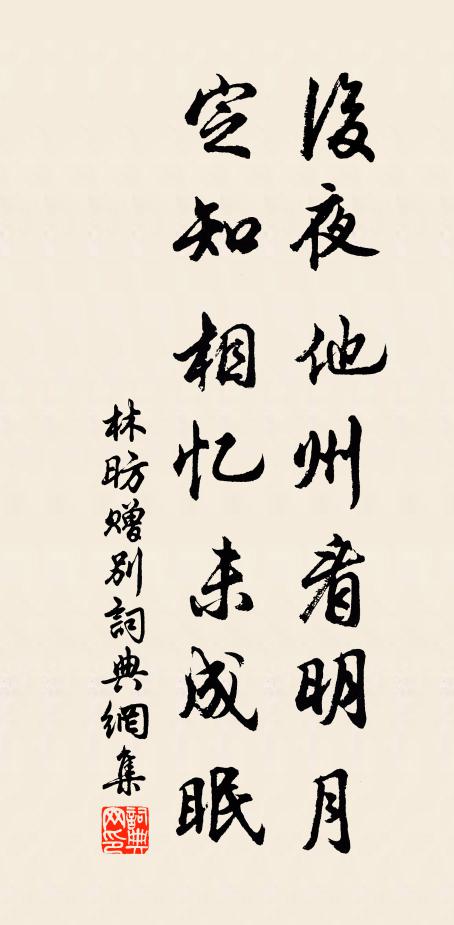 後夜他州看明月
定知相忆未成眠
林昉赠别詞典網集
詞典網印